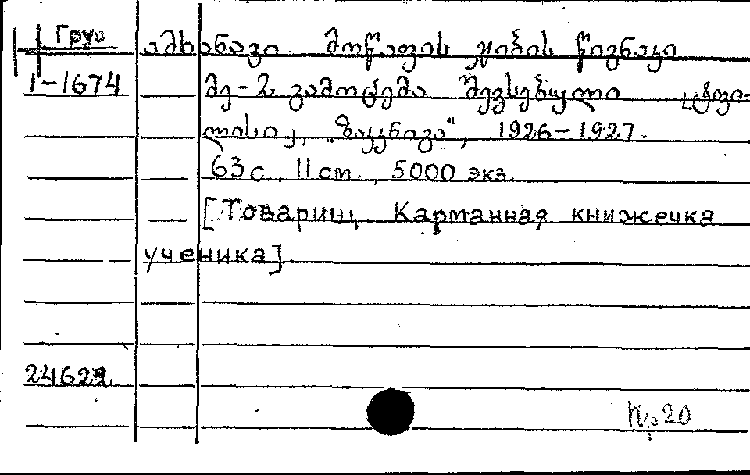 Груз
ამხანაგი მოწაფის ჯიბის წიგნაკი
1-1674
მე-2 გამოცემა შევსებული [ტფი-
ლისი], "ზაკკნიგა", 1926-1927.
63 с. 11 cm., 5000 экз.
[Товарищ Карманная книжечка
ученика].
24629.
№20